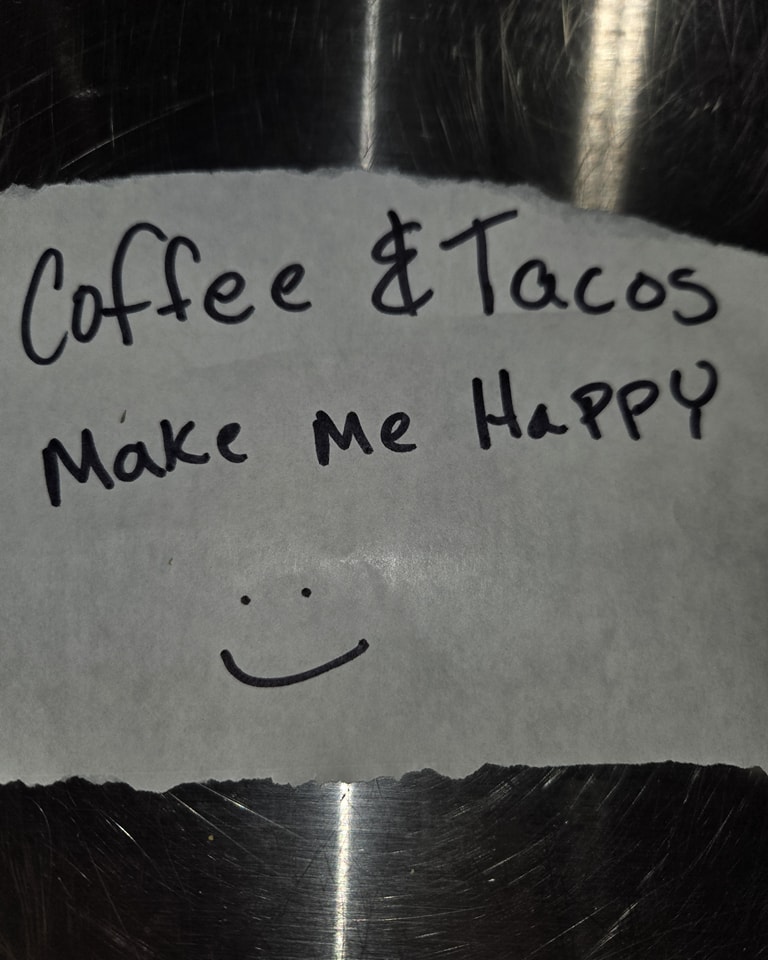 Coffee & Tacos
Make Me HaPPY